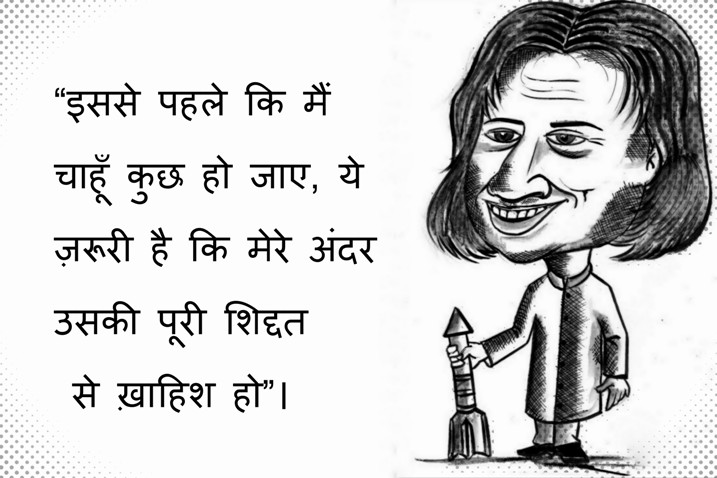 “इससे पहले कि मैं
चाहूँ कुछ हो जाए, ये
ज़रूरी है कि मेरे अंदर
उसकी पूरी शिद्दत
से ख़ाहिश हो”।